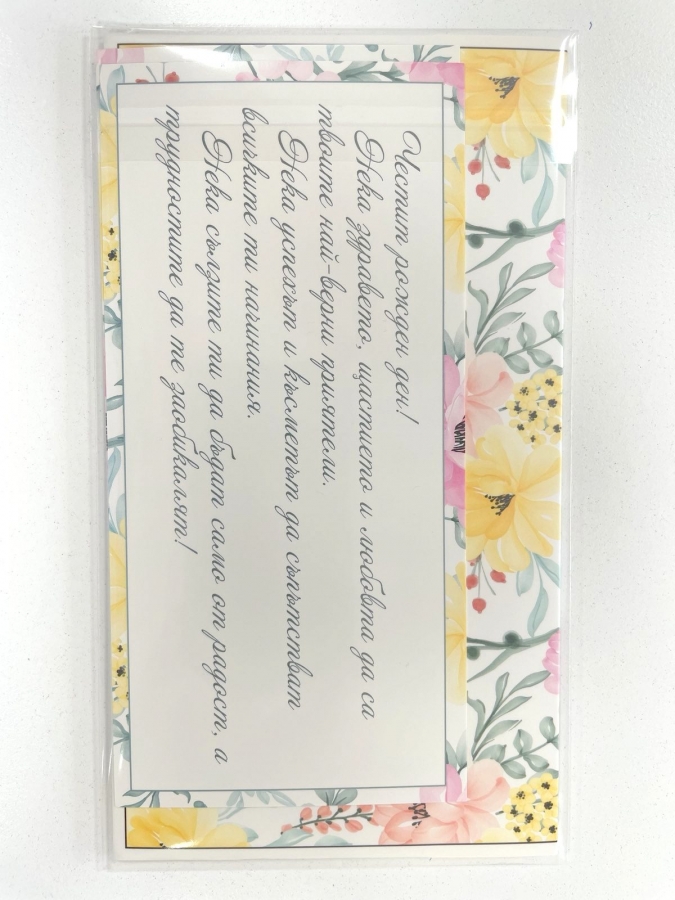 Честит рожден ден!
Нека здравето, щастието и любовта да са
твоите най-верни приятели.
Нека успехът и късметът да съпътстват
всичките ти начинания.
Нека сълзите ти да бъдат само от радост, а
трудностите да те заобикалят!